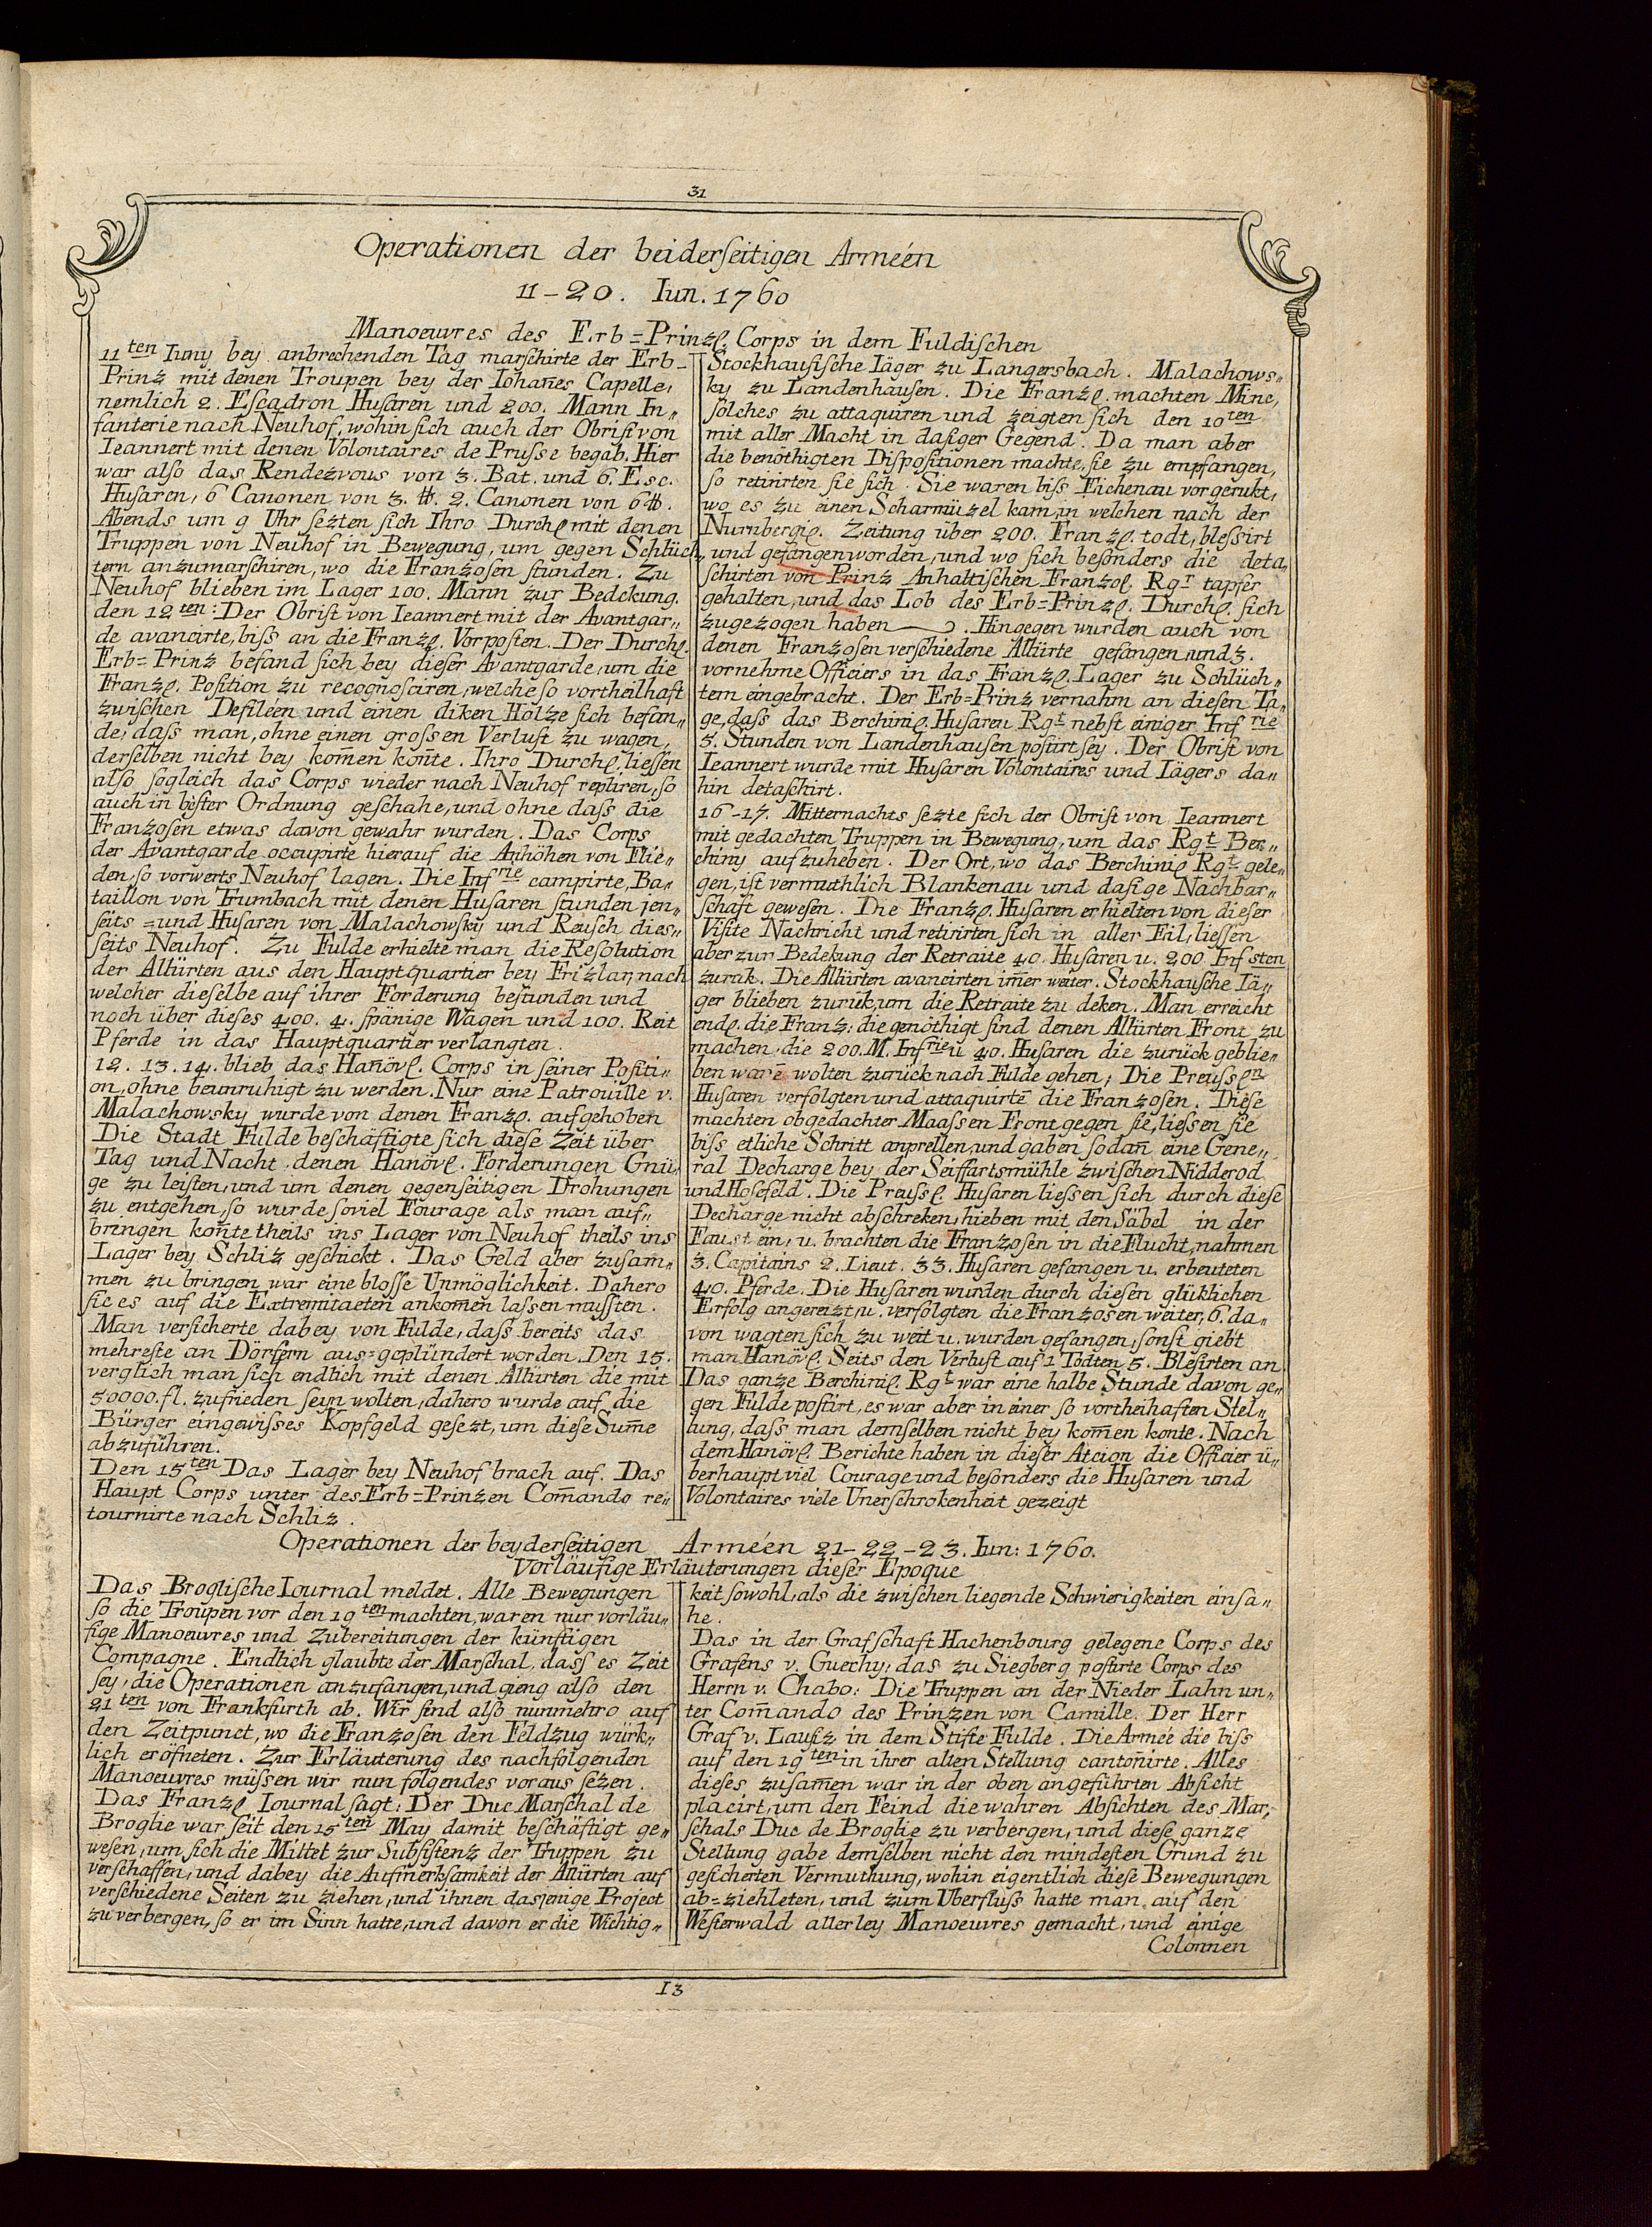 31
Operationen der beiderſeitigen Armeén
11-20. Iun. 1760
Manoeuvres des Erb=Prinzl. Corps in dem Fuldiſchen
11ten Iuny bey anbrechenden Tag marſchirte der Erb-
Prinz mit denen Troupen bey der Iohan̄es Capelle,
nemlich 2. Eſcadron Huſaren und 200. Mann In„
fanterie nach Neuhof, wohin ſich auch der Obriſt von
Ieannert mit denen Volontaires de Prusſe begab. Hier
war alſo das Rendezvous von 3. Bat. und 6. Esc.
Huſaren, 6 Canonen von 3. ℔. 2. Canonen von 6℔.
Abends um 9 Uhr ſezten ſich Ihro Durchl mit denen
Truppen von Neuhof in Bewegung, um gegen Schlüch„
tern anzumarſchiren, wo die Franzoſen ſtunden. Zu
Neuhof blieben im Lager 100. Mann zur Bedckung.
den 12ten: Der Obriſt von Ieannert mit der Avantgar„
de avancirte, biſs an die Franzl. Vorpoſten. Der Durchl.
Erb=Prinz befand ſich bey dieſer Avantgarde, um die
Franzl. Poſition zu recognoſciren, welche ſo vortheilhaft
zwiſchen Defileen und einen diken Hölze ſich befan„
de, daſs man, ohne einen groſsen Verluſt zu wagen,
derſelben nicht bey kom̄en kon̄te. Ihro Durchl. lieſsen
alſo ſogleich das Corps wieder nach Neuhof repliren, ſo
auch in beſter Ordnung geſchahe, und ohne daſs die
Franzoſen etwas davon gewahr wurden. Das Corps
der Avantgarde occupirte hierauf die Anhöhen von Flie„
den, ſo vorwerts Neuhof lagen. Die Infrie campirte, Ba„
taillon von Trumbach mit denen Huſaren ſtunden jen„
ſeits = und Huſaren von Malachowſky und Reuſch dies„
ſeits Neuhof. Zu Fulde erhielte man die Reſolution
der Alliirten aus den Hauptquartier bey Frizlar, nach
welcher dieſelbe auf ihrer Forderung beſtunden und
noch über dieſes 400. 4. ſpänige Wagen und 100. Reit
Pferde in das Hauptquartier verlangten.
12. 13. 14. blieb das Han̄övl. Corps in ſeiner Poſiti„
on, ohne beunruhigt zu werden. Nur eine Patroüille v.
Malachowsky wurde von denen Franzl. aufgehoben
Die Stadt Fulde beſchäftigte ſich dieſe Zeit über
Tag und Nacht, denen Hanövl. Forderungen Gnü„
ge zu leiſten, und um denen gegenſeitigen Drohungen
zu entgehen, ſo wurde ſoviel Fourage als man auf„
bringen kon̄te theils ins Lager von Neuhof theils ins
Lager bey Schliz geſchickt. Das Geld aber zuſam„
men zu bringen war eine bloſſe Unmöglichkeit. Dahero
ſie es auf die Extremitaeten ankom̄en laſsen muſsten.
Man verſicherte dabey von Fulde, daſs bereits das
mehreſte an Dörfern aus=geplündert worden. Den 15.
verglich man ſich endlich mit denen Alliirten die mit
50000. fl. zufrieden ſeyn wolten, dahero wurde auf die
Bürger ein gewiſses Kopfgeld geſezt, um dieſe Sum̄e
abzuführen.
Den 15ten Das Lager bey Neuhof brach auf. Das
Haupt Corps unter des Erb=Prinzen Com̄ando re„
tournirte nach Schliz.
Stockhauſiſche Iäger zu Langersbach. Malachows„
ky zu Landenhauſen. Die Franzl. machten Mine,
ſolches zu attaquiren und zeigten ſich den 10ten
mit aller Macht in daſiger Gegend. Da man aber
die benöthigten Diſpoſitionen machte, ſie zu empfangen,
ſo retirirten ſie ſich. Sie waren biſs Eichenau vorgerukt,
wo es zu einen Scharmüzel kam, in welchen nach der
Nurnbergiſ. Zeitung über 200. Franzl. todt, bleſsirt
und gefangen worden, und wo ſich beſonders die deta„
ſchirten von Prinz Anhaltiſchen Franzol. Rgr tapfer
gehalten, und das Lob des Erb=Prinzl. Durchl. ſich
zugezogen haben. Hingegen wurden auch von
denen Franzoſen verſchiedene Alliirte gefangen, und 3.
vornehme Officiers in das Franzl. Lager zu Schlüch„
tern eingebracht. Der Erb=Prinz vernahm an dieſen Ta„
ge, daſs das Berchiniſ. Huſaren Rgt nebſt einiger Infrie
5. Stunden von Landenhauſen poſtirt ſey. Der Obriſt von
Ieannert wurde mit Huſaren Volontaires und Iägers da„
hin detaſchirt.
16-17. Mitternachts ſezte ſich der Obriſt von Ieannert
mit gedachten Truppen in Bewegung, um das Rgt Ber„
chiny aufzuheben. Der Ort, wo das Berchiniſ Rgt gele„
gen, iſt vermuthlich Blankenau und daſige Nachbar„
ſchaft geweſen. Die Franzl. Huſaren erhielten von dieſer
Viſite Nachricht und retirirten ſich in aller Eil, lieſsen
aber zur Bedekung der Retraite 40. Huſaren u. 200 Infsten
zurük. Die Alliirten avancirten im̄er weiter. Stockhauſche Iä„
ger blieben zurük, um die Retraite zu deken. Man erreicht
endl. die Franz: die genöthigt ſind denen Alliirten Front zu
machen, die 200. M. Infrie u 40. Huſaren die zurück geblie„
ben warē wolten zurück nach Fulde gehen; Die Preuſsln
Huſaren verfolgten und attaquirtē die Franzoſen. Dieſe
machten obgedachter Maaſsen Front gegen ſie, lieſsen ſie
biſs etliche Schritt anprellen, und gaben ſodan̄ eine Gene„
ral Decharge bey der Seiffartsmühle zwiſchen Nidderod
und Hoſefeld. Die Preuſsl. Huſaren lieſsen ſich durch dieſe
Decharge nicht abſchreken, hieben mit den Säbel in der
Faust ein, u. brachten die Franzoſen in die Flucht, nahmen
3. Capitains 2. Lieut. 33. Huſaren gefangen u. erbeuteten
40. Pferde. Die Huſaren wurden durch dieſen glüklichen
Erfolg angereizt, u. verfolgten die Franzoſen weiter, 6. da„
von wagten ſich zu weit u. wurden gefangen, ſonſt giebt
man Hanövl. Seits den Verluſt auf 1 Todten 5. Bleſirten an
Das ganze Berchiniſ. Rgt war eine halbe Stunde davon ge„
gen Fulde poſtirt, es war aber in einer ſo vortheihaften Stel„
lung, daſs man demſelben nicht bey kom̄en konte. Nach
dem Hanövl. Berichte haben in dieſer Atcion die Officier ü„
berhaupt viel Courage und beſonders die Huſaren und
Volontaires viele Unerſchrokenheit gezeigt
Operationen der beyderſeitigen Arméen 21-22-23. Iun: 1760.
Vorläufige Erläuterungen dieſer Epoque
Das Brogliſche Iournal meldet. Alle Bewegungen
ſo die Troupen vor den 19ten machten, waren nur vorläu„
fige Manoeuvres und Zubereitungen der künftigen
Compagne. Endlich glaubte der Marſchal, daſs es Zeit
ſey, die Operationen anzufangen, und gieng alſo den
21ten von Frankfurth ab. Wir ſind alſo nunmehro auf
den Zeitpunct, wo die Franzoſen den Feldzug würk„
lich eröfneten. Zur Erläuterung des nachfolgenden
Manoeuvres müſsen wir nun folgendes voraus ſezen.
Das Franzl. Iournal ſagt: Der Duc Marſchal de
Broglie war ſeit den 15ten May damit beſchäftigt ge„
weſen, um ſich die Mittel zur Subſiſtenz der Truppen zu
verſchaffen, und dabey die Aufmerkſamkeit der Alliirten auf
verſchiedene Seiten zu ziehen, und ihnen dasjenige Project
zu verbergen, ſo er im Sinn hatte, und davon er die Wichtig„
keit ſowohl, als die zwiſchen liegende Schwierigkeiten einſa„
he.
Das in der Grafſchaft Hachenbourg gelegene Corps des
Grafens v. Guerchy, das zu Siegberg poſtirte Corps des
Herrn v. Chabo: Die Truppen an der Nieder Lahn un„
ter Com̄ando des Prinzen von Camille. Der Herr
Graf v. Lauſz in dem Stifte Fulde. Die Armée die biſs
auf den 19ten in ihrer alten Stellung canton̄irte. Alles
dieſes zuſam̄en war in der oben angeführten Abſicht
placirt, um den Feind die wahren Abſichten des Mar„
ſchals Duc de Broglie zu verbergen, und dieſe ganze
Stellung gabe demſelben nicht den mindeſten Grund zu
geſicherten Vermuthung, wohin eigentlich dieſe Bewegungen
ab=ziehleten, und zum Uberfluſs hatte man auf den
Weſterwald allerley Manoeuvres gemacht, und einige
Colonnen
13